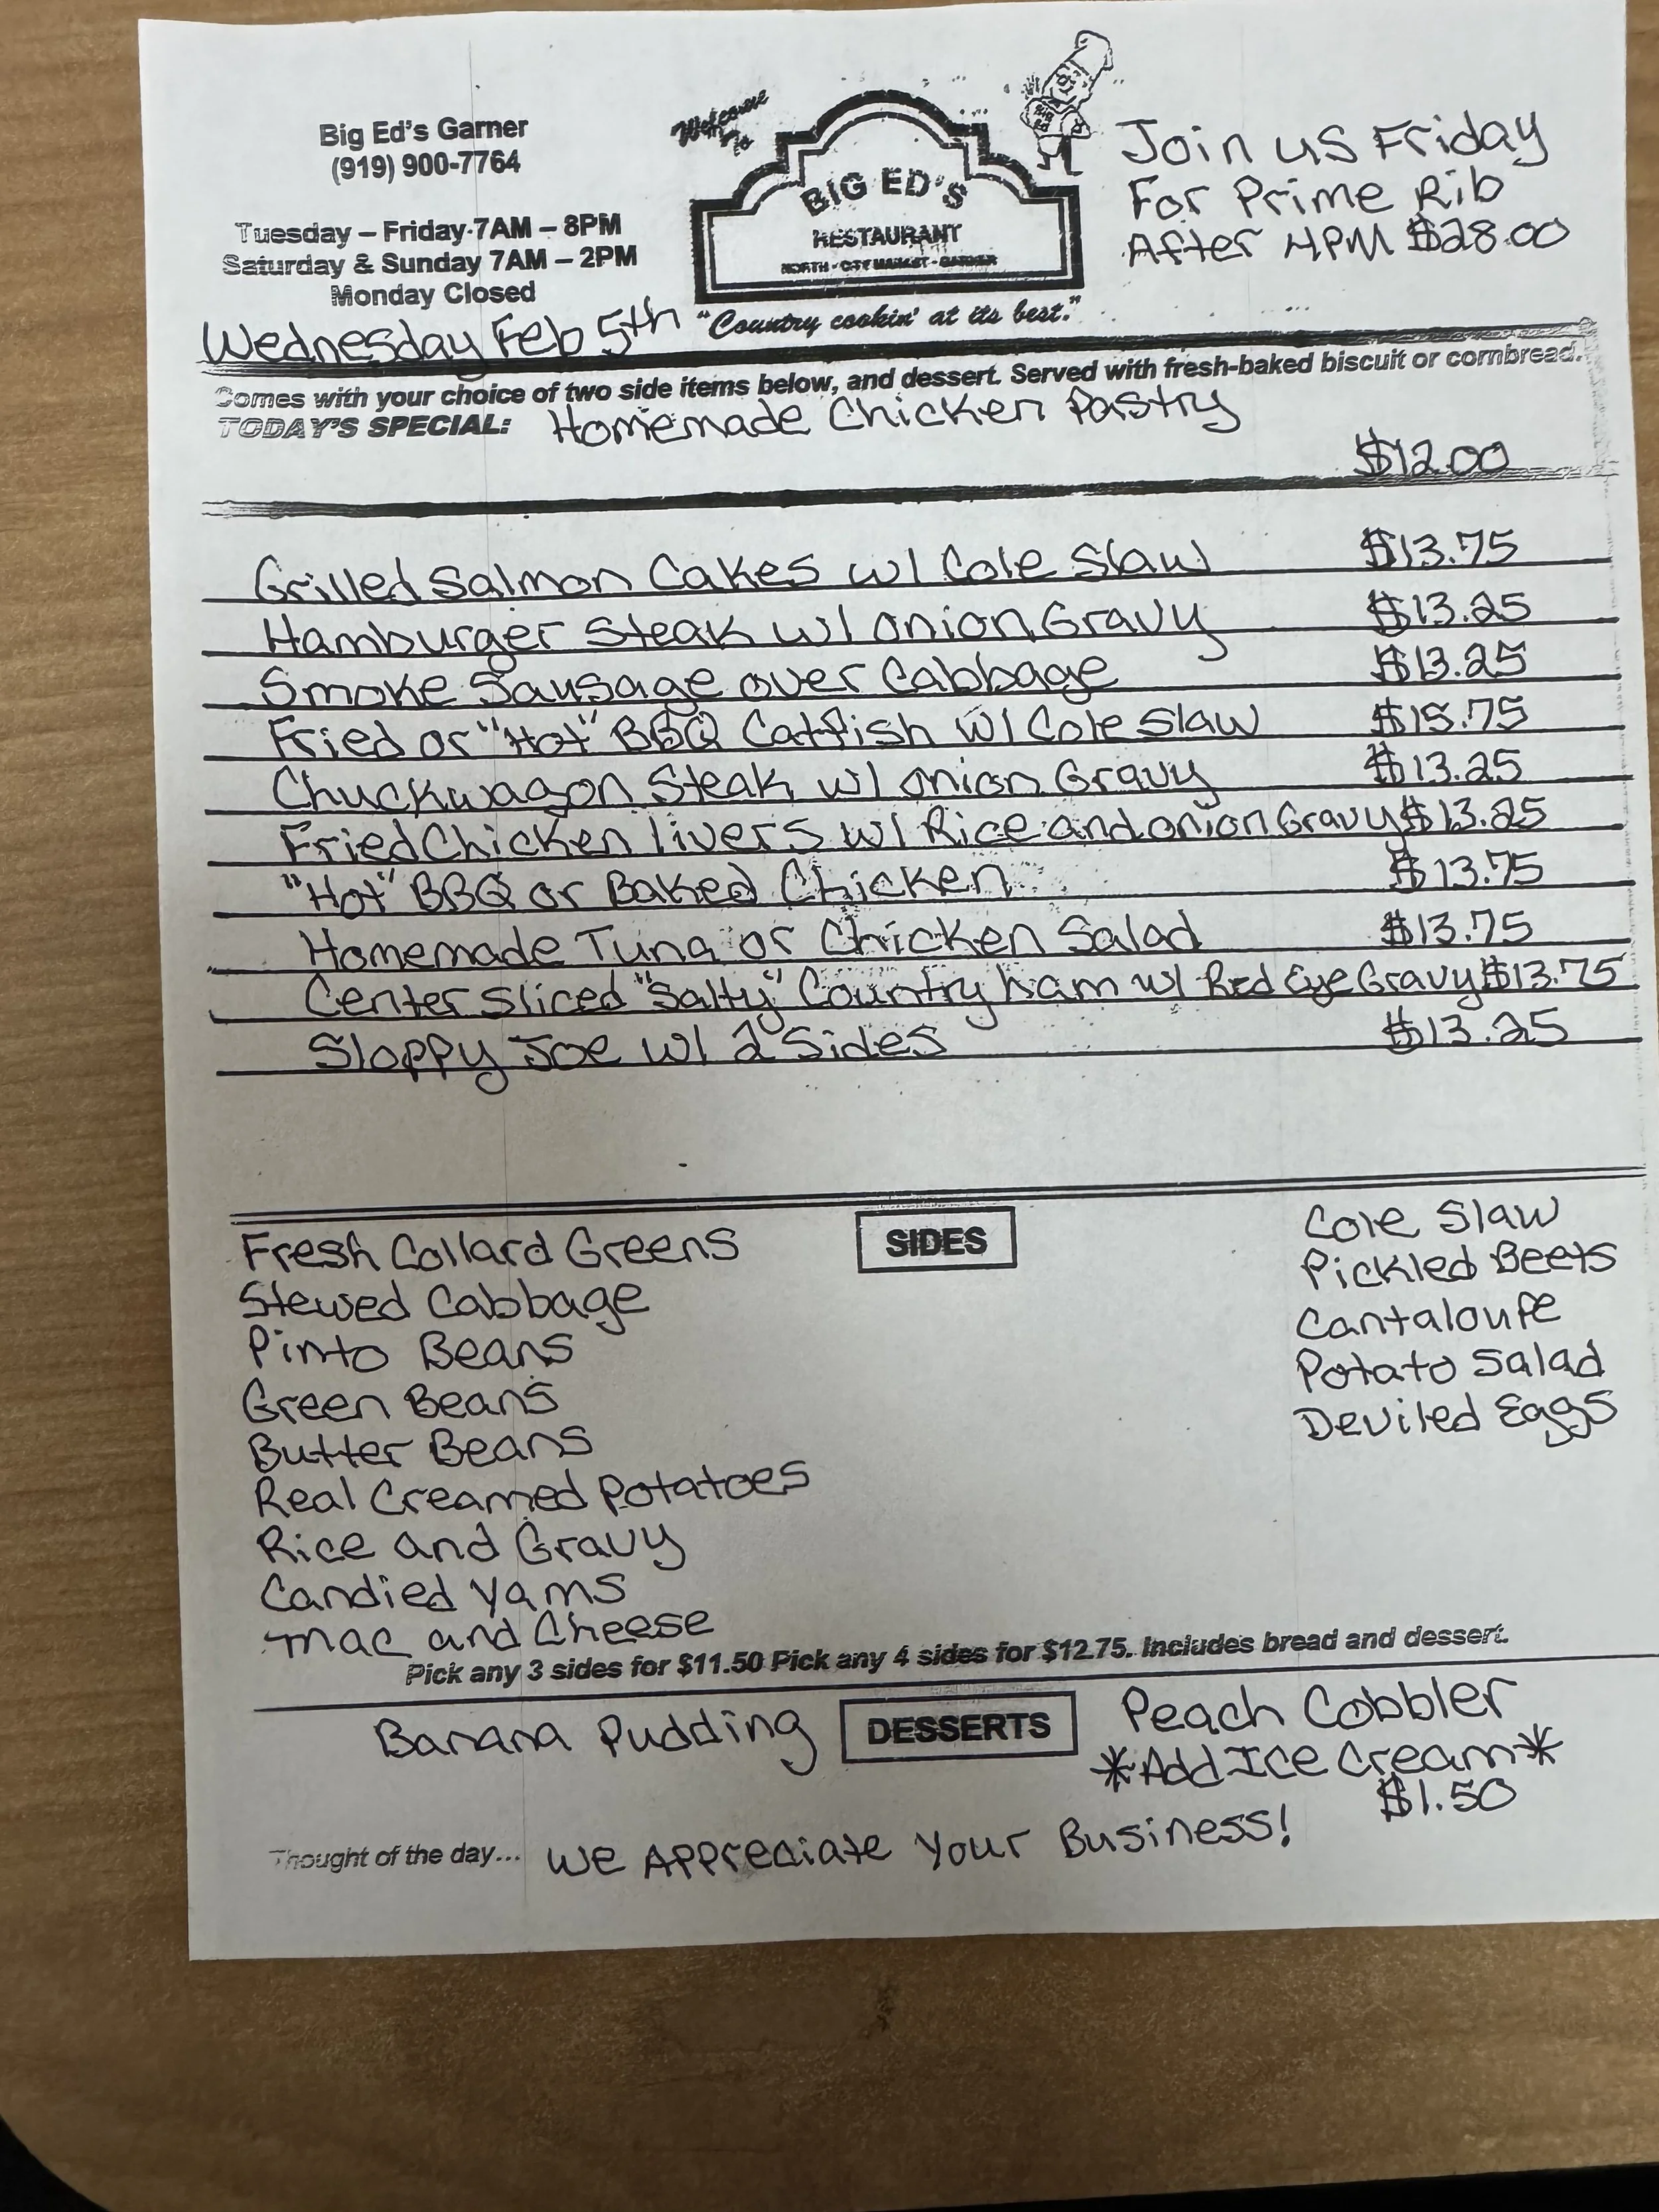 Big Ed's Garner
(919) 900-7764
Tuesday – Friday 7AM – 8PM
Saturday & Sunday 7AM – 2PM
Monday Closed
Welcome To
BIG ED'S
RESTAURANT
NORTH - CITY MARKET - GARNER
"Country cookin' at its best."
Join us Friday
For Prime Rib
After 4PM $28.00
Wednesday Feb 5th
Comes with your choice of two side items below, and dessert. Served with fresh-baked biscuit or cornbread.
TODAY'S SPECIAL: Homemade Chicken Pastry
$12.00
Grilled Salmon Cakes w/ Cole Slaw $13.75
Hamburger Steak w/ Onion Gravy $13.25
Smoke Sausage over Cabbage $13.25
Fried or "Hot" BBQ Catfish w/ Cole Slaw $15.75
Chuckwagon Steak w/ Onion Gravy $13.25
Fried Chicken livers w/ Rice and Onion Gravy $13.25
"Hot" BBQ or Baked Chicken $13.75
Homemade Tuna or Chicken Salad $13.75
Center Sliced "Salty" Country ham w/ Red Eye Gravy $13.75
Sloppy Joe w/ 2 Sides $13.25
SIDES
Fresh Collard Greens
Stewed Cabbage
Pinto Beans
Green Beans
Butter Beans
Real Creamed Potatoes
Rice and Gravy
Candied Yams
Mac and Cheese
Cole Slaw
Pickled Beets
Cantaloupe
Potato Salad
Deviled Eggs
Pick any 3 sides for $11.50 Pick any 4 sides for $12.75. Includes bread and dessert.
DESSERTS
Banana Pudding
Peach Cobbler
*Add Ice Cream*
$1.50
Thought of the day... We Appreciate Your Business!